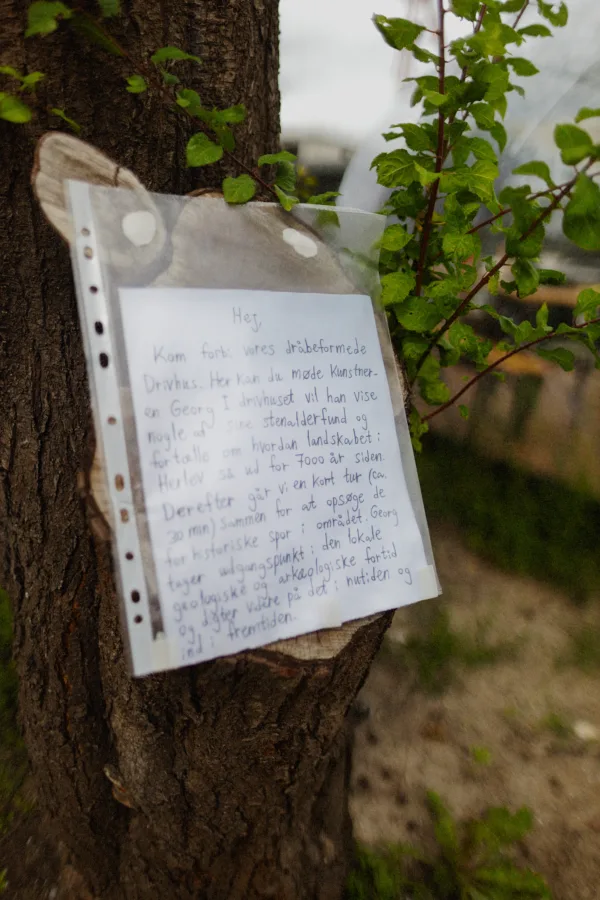 Hej,
Kom forbi vores dråbeformede
Drivhus. Her kan du møde Kunstner-
en Georg I drivhuset vil han vise
nogle af sine stenalderfund og
fortælle om hvordan landskabet i
Herlev så ud for 7000 år siden.
Derefter går vi en kort tur (ca.
30 min) sammen for at opsøge de
forhistoriske spor i området. Georg
tager udgangspunkt i den lokale
geologiske og arkæologiske fortid
og digter videre på det i nutiden og
ind i fremtiden.